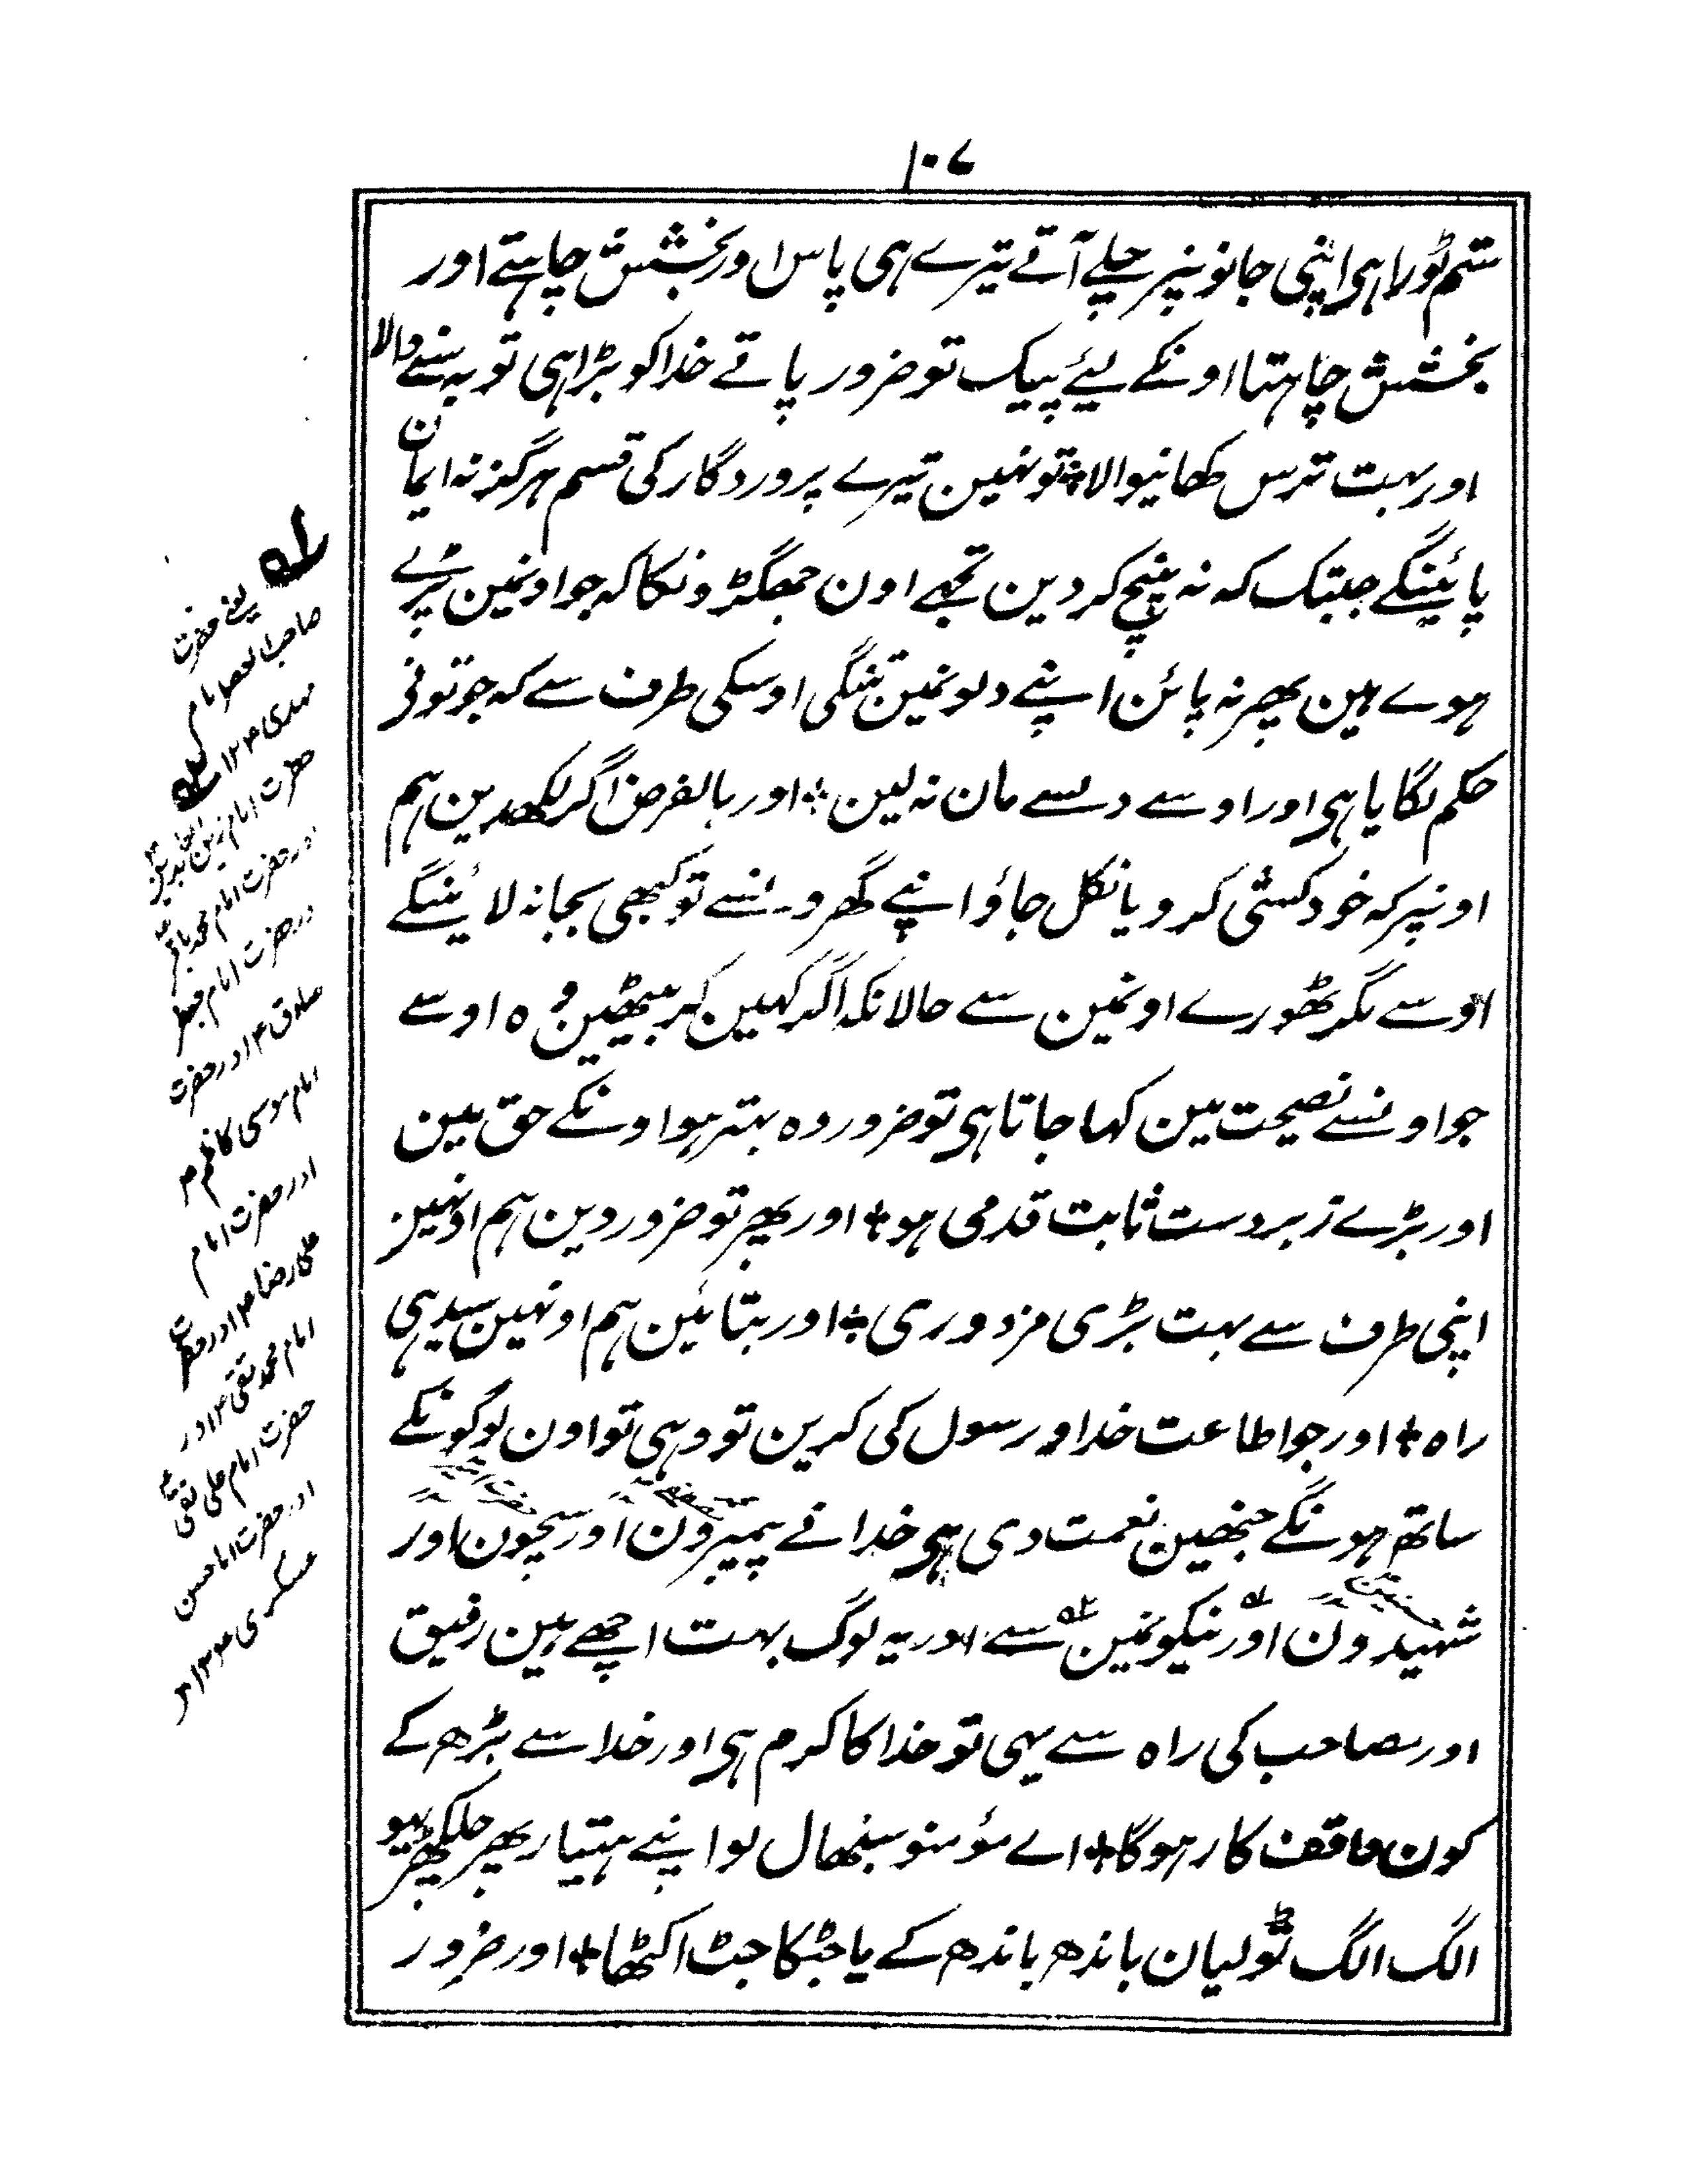 ۱۰۷
ستم ٹورا ہی اپنی جانونپر چلے آتے تیرے ہی پاس اور بخشش چاہتے اور
بخشش چاہتا اونکے لیئے پیک تو ضرور پاتے خدا کو بڑا ہی توبہ سننے والا
اور بہت ترس کھانیوالا ÷ تو نہین تیرے پروردگار کی قسم ہرگز نہ ایمان
پائینگے جبتک کہ نہ پنچ کر دین تجھے اون جھگڑونکا کہ جو اونمین پڑے
ہوے ہین پھر نہ پائن اپنے دلونمین تنگی اوسکی طرف سے کہ جو تونی
حکم لگایا ہی اور اوسے دلسے مان نہ لین ÷ اور بالفرض اگر لکھدین ہم
اونپر کہ خودکشی کرو یا نکل جاؤ اپنے گھرونسے تو کبھی بجا نہ لائینگے
اوسے مگر ٹھورے اونمین سے حالانکہ اگر کہین کر بیٹھین وہ اوسے
جو اونسے نصیحت مین کہا جاتا ہی تو ضرور وہ بہتر ہوا اونکے حق مین
اور بڑے زبردست ثابت قدمی ہو ÷ اور پھر تو ضرور دین ہم اونہین
اپنی طرف سے بہت بڑی مزدوری ÷ اور بتائین ہم اونہین سیدہی
راہ ÷ اور جو اطاعت خدا و رسول کی کرین تو وہی تو اون لوگونکے
ساتھ ہونگے جنھین نعمت دی ہی خدا نے پیمبرون اور سچون اور
شہیدون اور نیکونمین سے اور یہ لوگ بہت اچھے ہین رفیق
اور مصاحب کی راہ سے یہی تو خدا کا کرم ہی اور خدا سے بڑھ کے
کون واقف کار ہوگا ÷ اے مؤمنو سنبھال لو اپنے ہتیار پھر
الگ الگ ٹولیان باندھ باندھ کے یا جٹکا جٹ اکٹھا ÷ اور ضرور
یعنے حضرت
صاحب العصر امام
مہدی ۱۲
حضرت امام زین العابدین
اور حضرت امام محمد باقر
اور حضرت امام جعفر
صادق اور حضرت
امام موسی کاظم
اور حضرت امام
علی رضا اور حضرت
امام محمد تقی اور
حضرت امام علی نقی
اور حضرت امام حسن
عسکری ۱۲